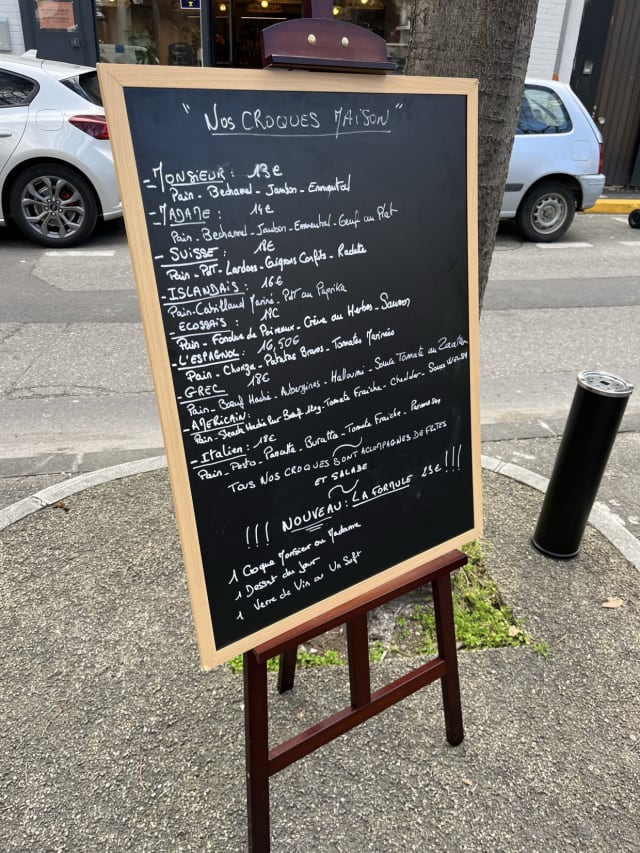 "Nos CROQUES MAISON"
- MONSIEUR : 13€
Pain - Bechamel - Jambon - Emmental
- MADAME : 14€
Pain - Bechamel - Jambon - Emmental - Oeuf au Plat
- SUISSE : 18€
Pain - PdT - Lardons - Oignons Confits - Raclette
- ISLANDAIS : 16€
Pain - Cabillaud Mariné - PdT au Paprika
- ECOSSAIS :
Pain - Fondue de Poireaux - Crème au Herbes - Saumon
- L'ESPAGNOL : 16,50€
Pain - Chorizo - Patatas Bravas - Tomates Marinées
- GREC : 18€
Pain - Bœuf Haché - Aubergines - Halloumi - Sauce Tomate au Zaatar
- AMERICAIN :
Pain - Steack Haché Pur Bœuf - Tomate Fraiche - Cheddar - Sauce
- Italien : 18€
Pain - Pesto - Pancetta - Buratta - Tomate Fraiche - Parmesan
TOUS NOS CROQUES SONT ACCOMPAGNES DE FRITES
ET SALADE
!!! NOUVEAU : LA FORMULE 23€ !!!
1 Croque Monsieur ou Madame
1 Dessert du Jour
1 Verre de Vin ou Un Soft